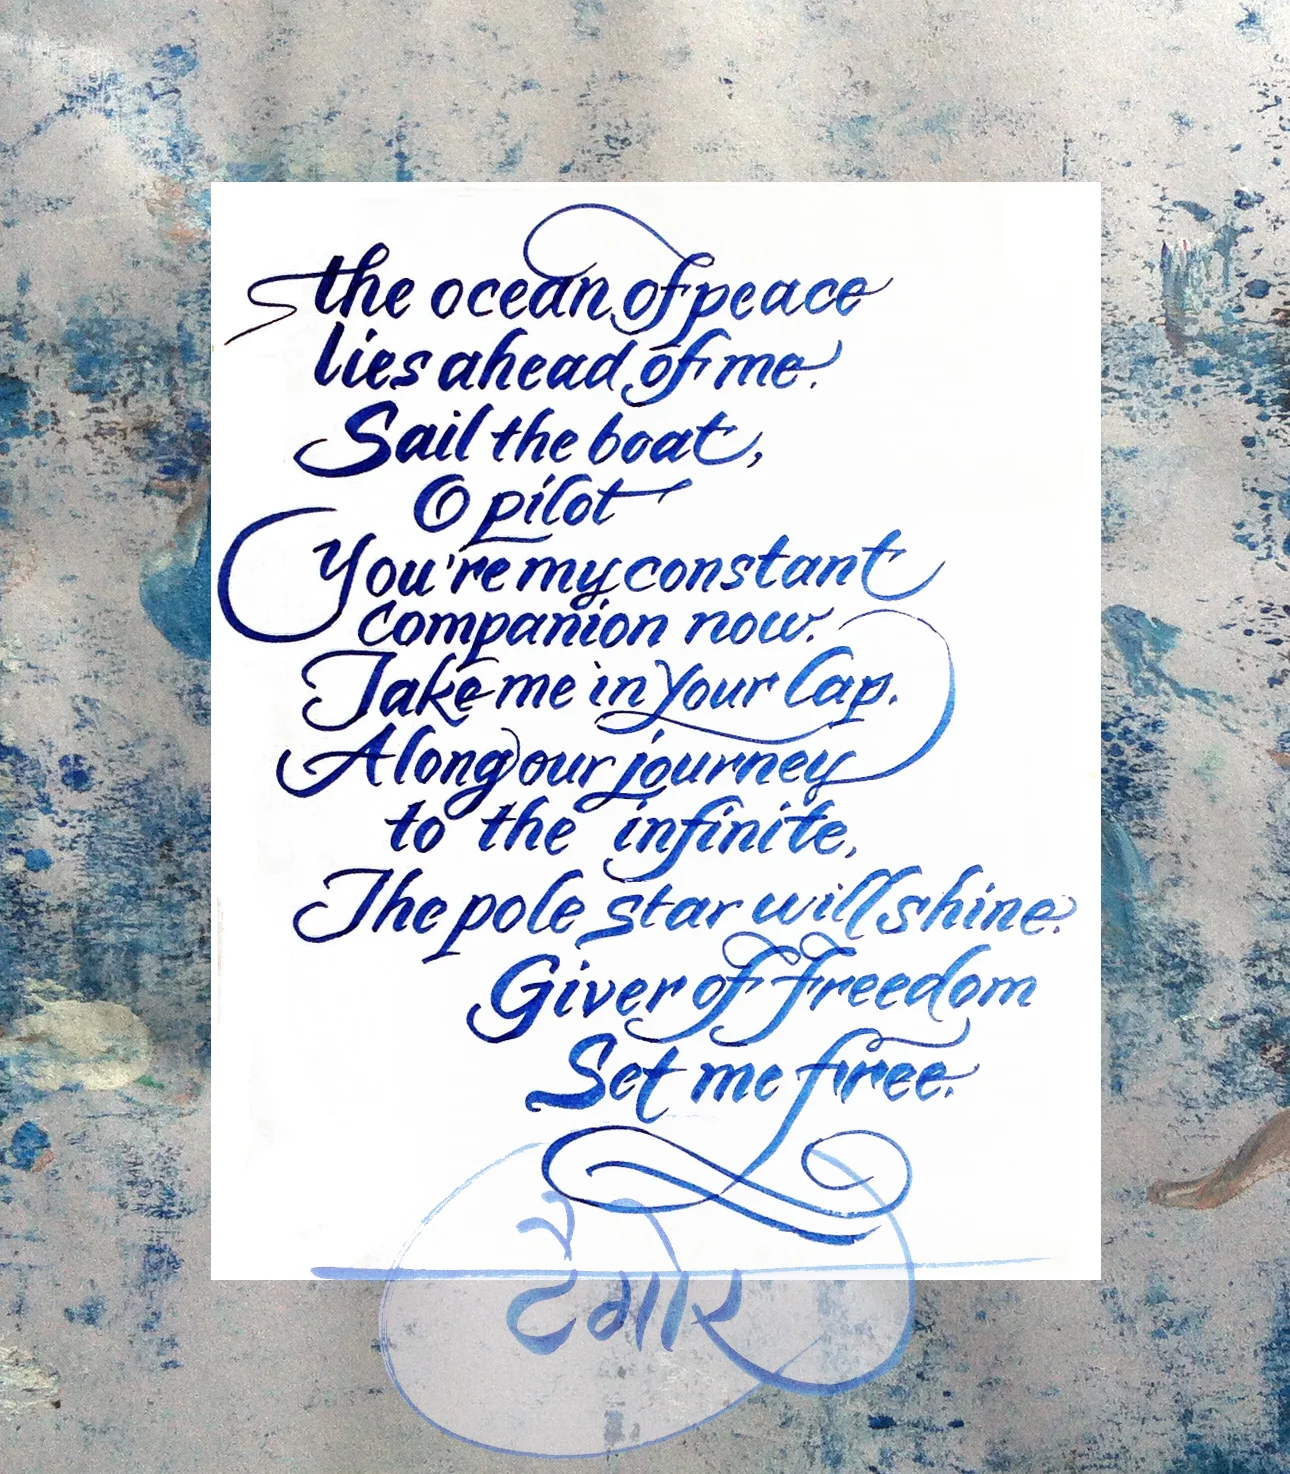 the ocean of peace
lies ahead of me.
Sail the boat,
O pilot
You're my constant
companion now.
Take me in your lap.
Along our journey
to the infinite,
The pole star will shine.
Giver of freedom
Set me free.
टैगोर